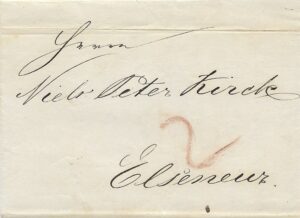 Herrn
Niels Peter Kirck
2
Elseneur.